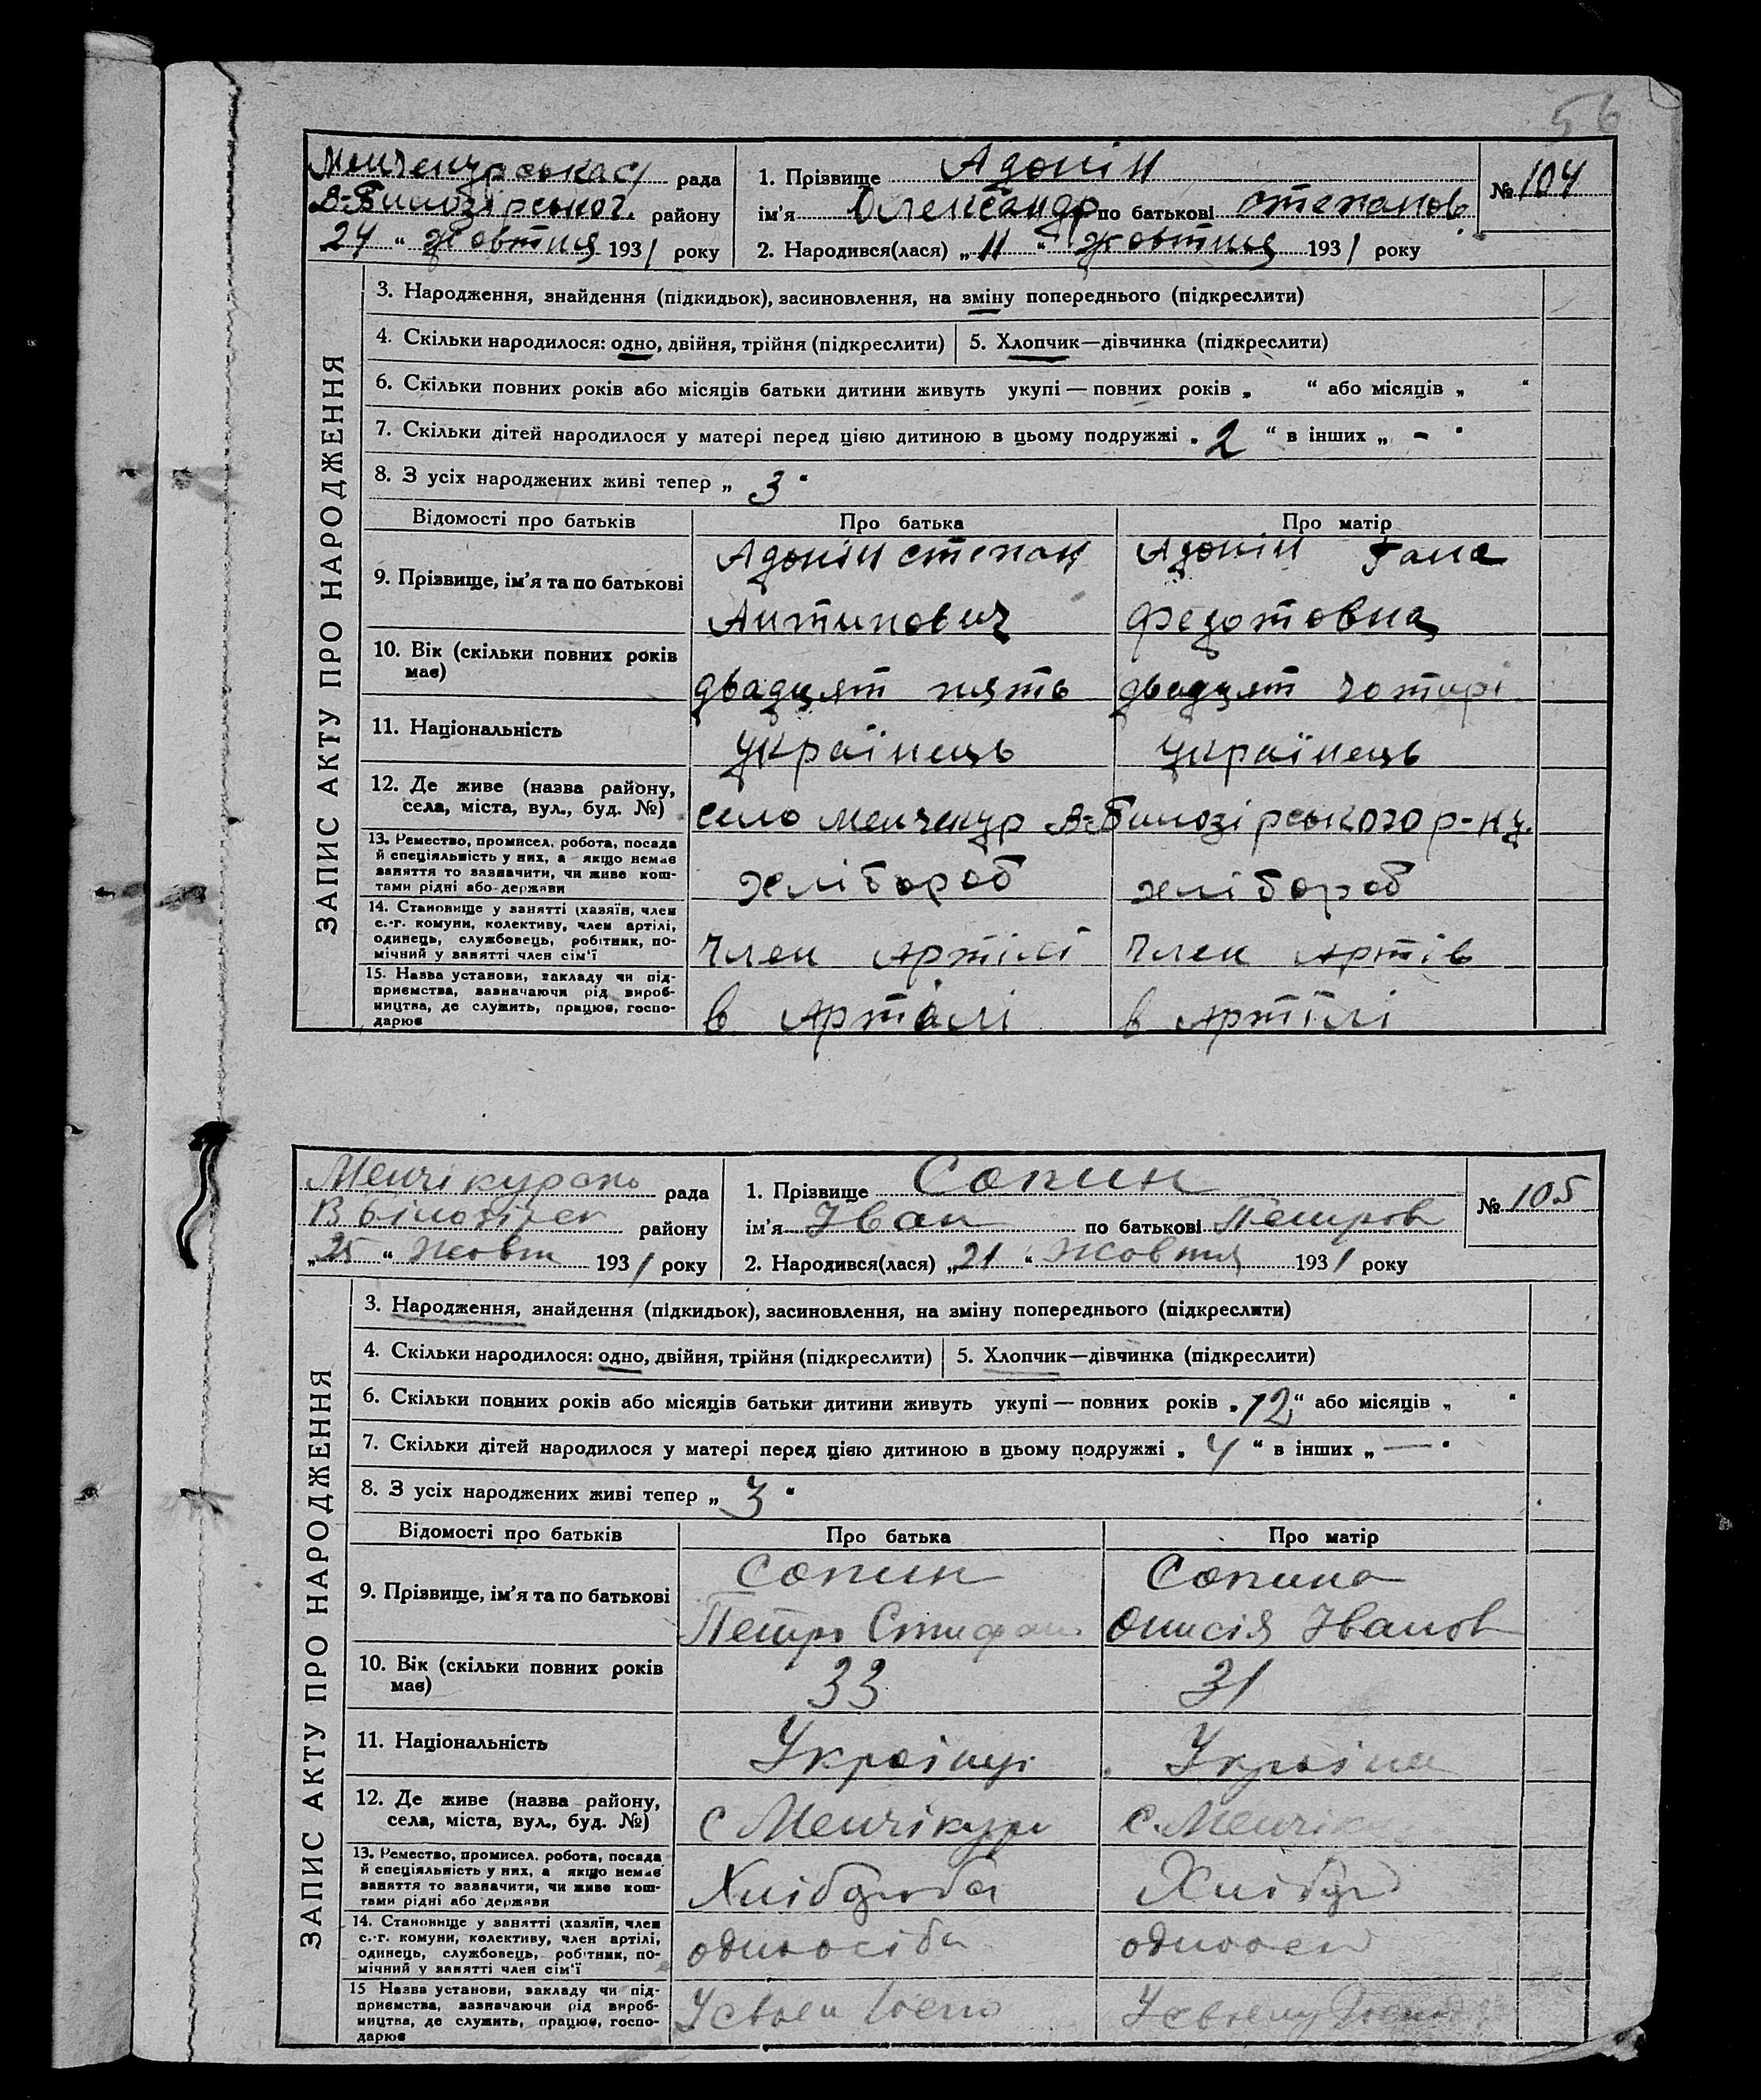 56
Менчекурська с/ рада
В-Билозірськог. районy
24 " жовтня 1931 року
1. Прізвище Адонін
ім'я Олександр по батькові степанов
2. Народився(лася) „11" жовтня 1931 року
№ 104
ЗАПИС АКТУ ПРО НАРОДЖЕННЯ
3. Народження, знайдення (підкидьок), засиновлення, на зміну попереднього (підкреслити)
4. Скільки народилося: одно, двійня, трійня (підкреслити) 5. Хлопчик—дівчинка (підкреслити)
6. Скільки повних років або місяців батьки дитини живуть укупі — повних років „ " або місяців „ "
7. Скільки дітей народилося у матері перед цією дитиною в цьому подружжі „ 2 " в інших „ - "
8. З усіх народжених живі тепер „ 3 "
Відомості про батьків Про батька Про матір
9. Прізвище, ім'я та по батькові
Адонін степан Адонін Гана
Антипович Федотовна
10. Вік (скільки повних років має)
двадцят пять двадцят чотирі
11. Національність Українець українець
12. Де живе (назва району, села, міста, вул., буд. №)
село менчекур В-Билозірського р-ну.
13. Ремество, промисел, робота, посада
й спеціяльність у них, а якщо немає
заняття то зазначити, чи живе кош-
тами рідні або держави
хлібороб хлібороб
14. Становище у занятті (хазяїн, член
с.-г. комуни, колективу, член артілі,
одинець, службовець, робітник, по-
мічний у занятті член сім'ї
член Артілі член Артів
15. Назва установи, закладу чи під-
приємства, зазначаючи рід вироб-
ництва, де служить, працює, госпо-
дарює
в Артілі в Артілі
Менчікурсь рада
В білозірсь району
„25 " Жовт 1931 року
1. Прізвище Сопин
ім'я Іван по батькові Петров
2. Народився(лася) „21 " Жовтня 1931 року
№ 105
ЗАПИС АКТУ ПРО НАРОДЖЕННЯ
3. Народження, знайдення (підкидьок), засиновлення, на зміну попереднього (підкреслити)
4. Скільки народилося: одно, двійня, трійня (підкреслити) 5. Хлопчик—дівчинка (підкреслити)
6. Скільки повних років або місяців батьки дитини живуть укупі — повних років „12" або місяців „ "
7. Скільки дітей народилося у матері перед цією дитиною в цьому подружжі „ 4 " в інших „ — "
8. З усіх народжених живі тепер „ 3 "
Відомості про батьків Про батька Про матір
9. Прізвище, ім'я та по батькові
Сопин Сопина
Петро Стифан. Онисія Іванов
10. Вік (скільки повних років має)
33 31
11. Національність Українці Україна
12. Де живе (назва району, села, міста, вул., буд. №)
с Менчікури с. Менчік
13. Ремество, промисел, робота, посада
й спеціяльність у них, а якщо немає
заняття то зазначити, чи живе кош-
тами рідні або держави
Хліборобсі Хлібор
14. Становище у занятті (хазяїн, член
с.-г. комуни, колективу, член артілі,
одинець, службовець, робітник, по-
мічний у занятті член сім'ї
одноосіби одноосі
15 Назва установи, закладу чи під-
приємства, зазначаючи рід вироб-
ництва, де служить, працює, госпо-
дарює
У своєм У своєму